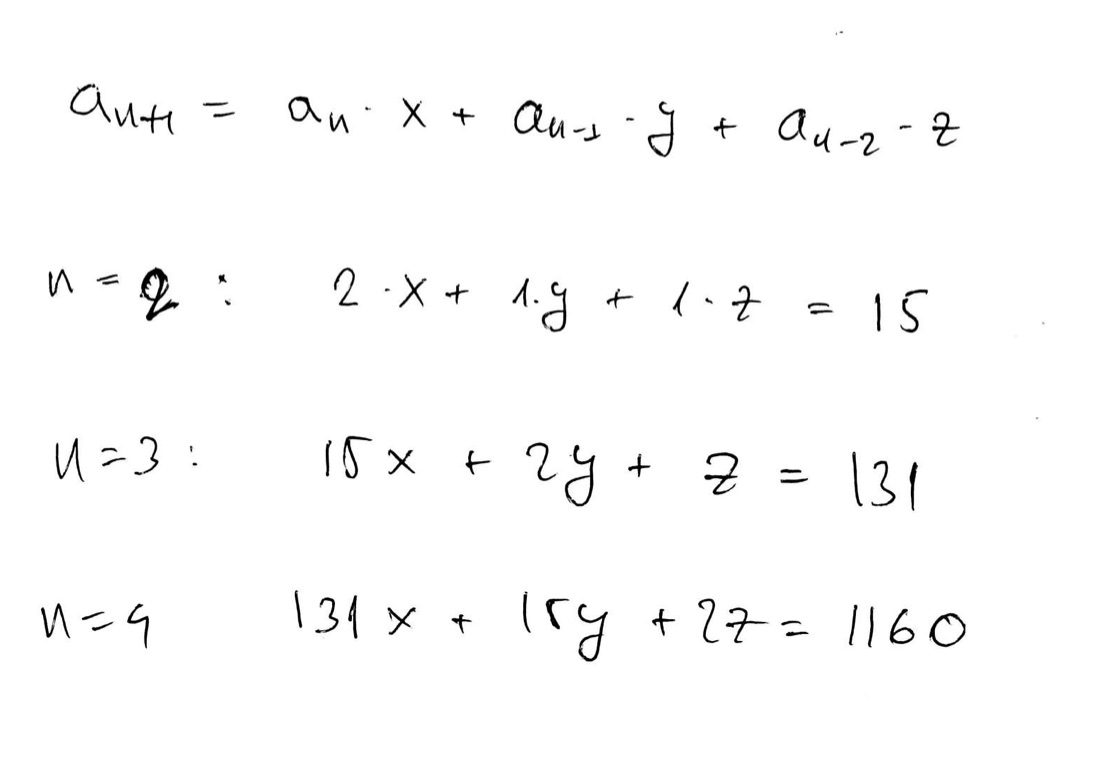 aₙ₊₁ = aₙ · x + aₙ₋₁ · y + aₙ₋₂ · z
n = 2 : 2 · x + 1 · y + 1 · z = 15
n = 3 : 15x + 2y + z = 131
n = 4 131x + 15y + 2z = 1160